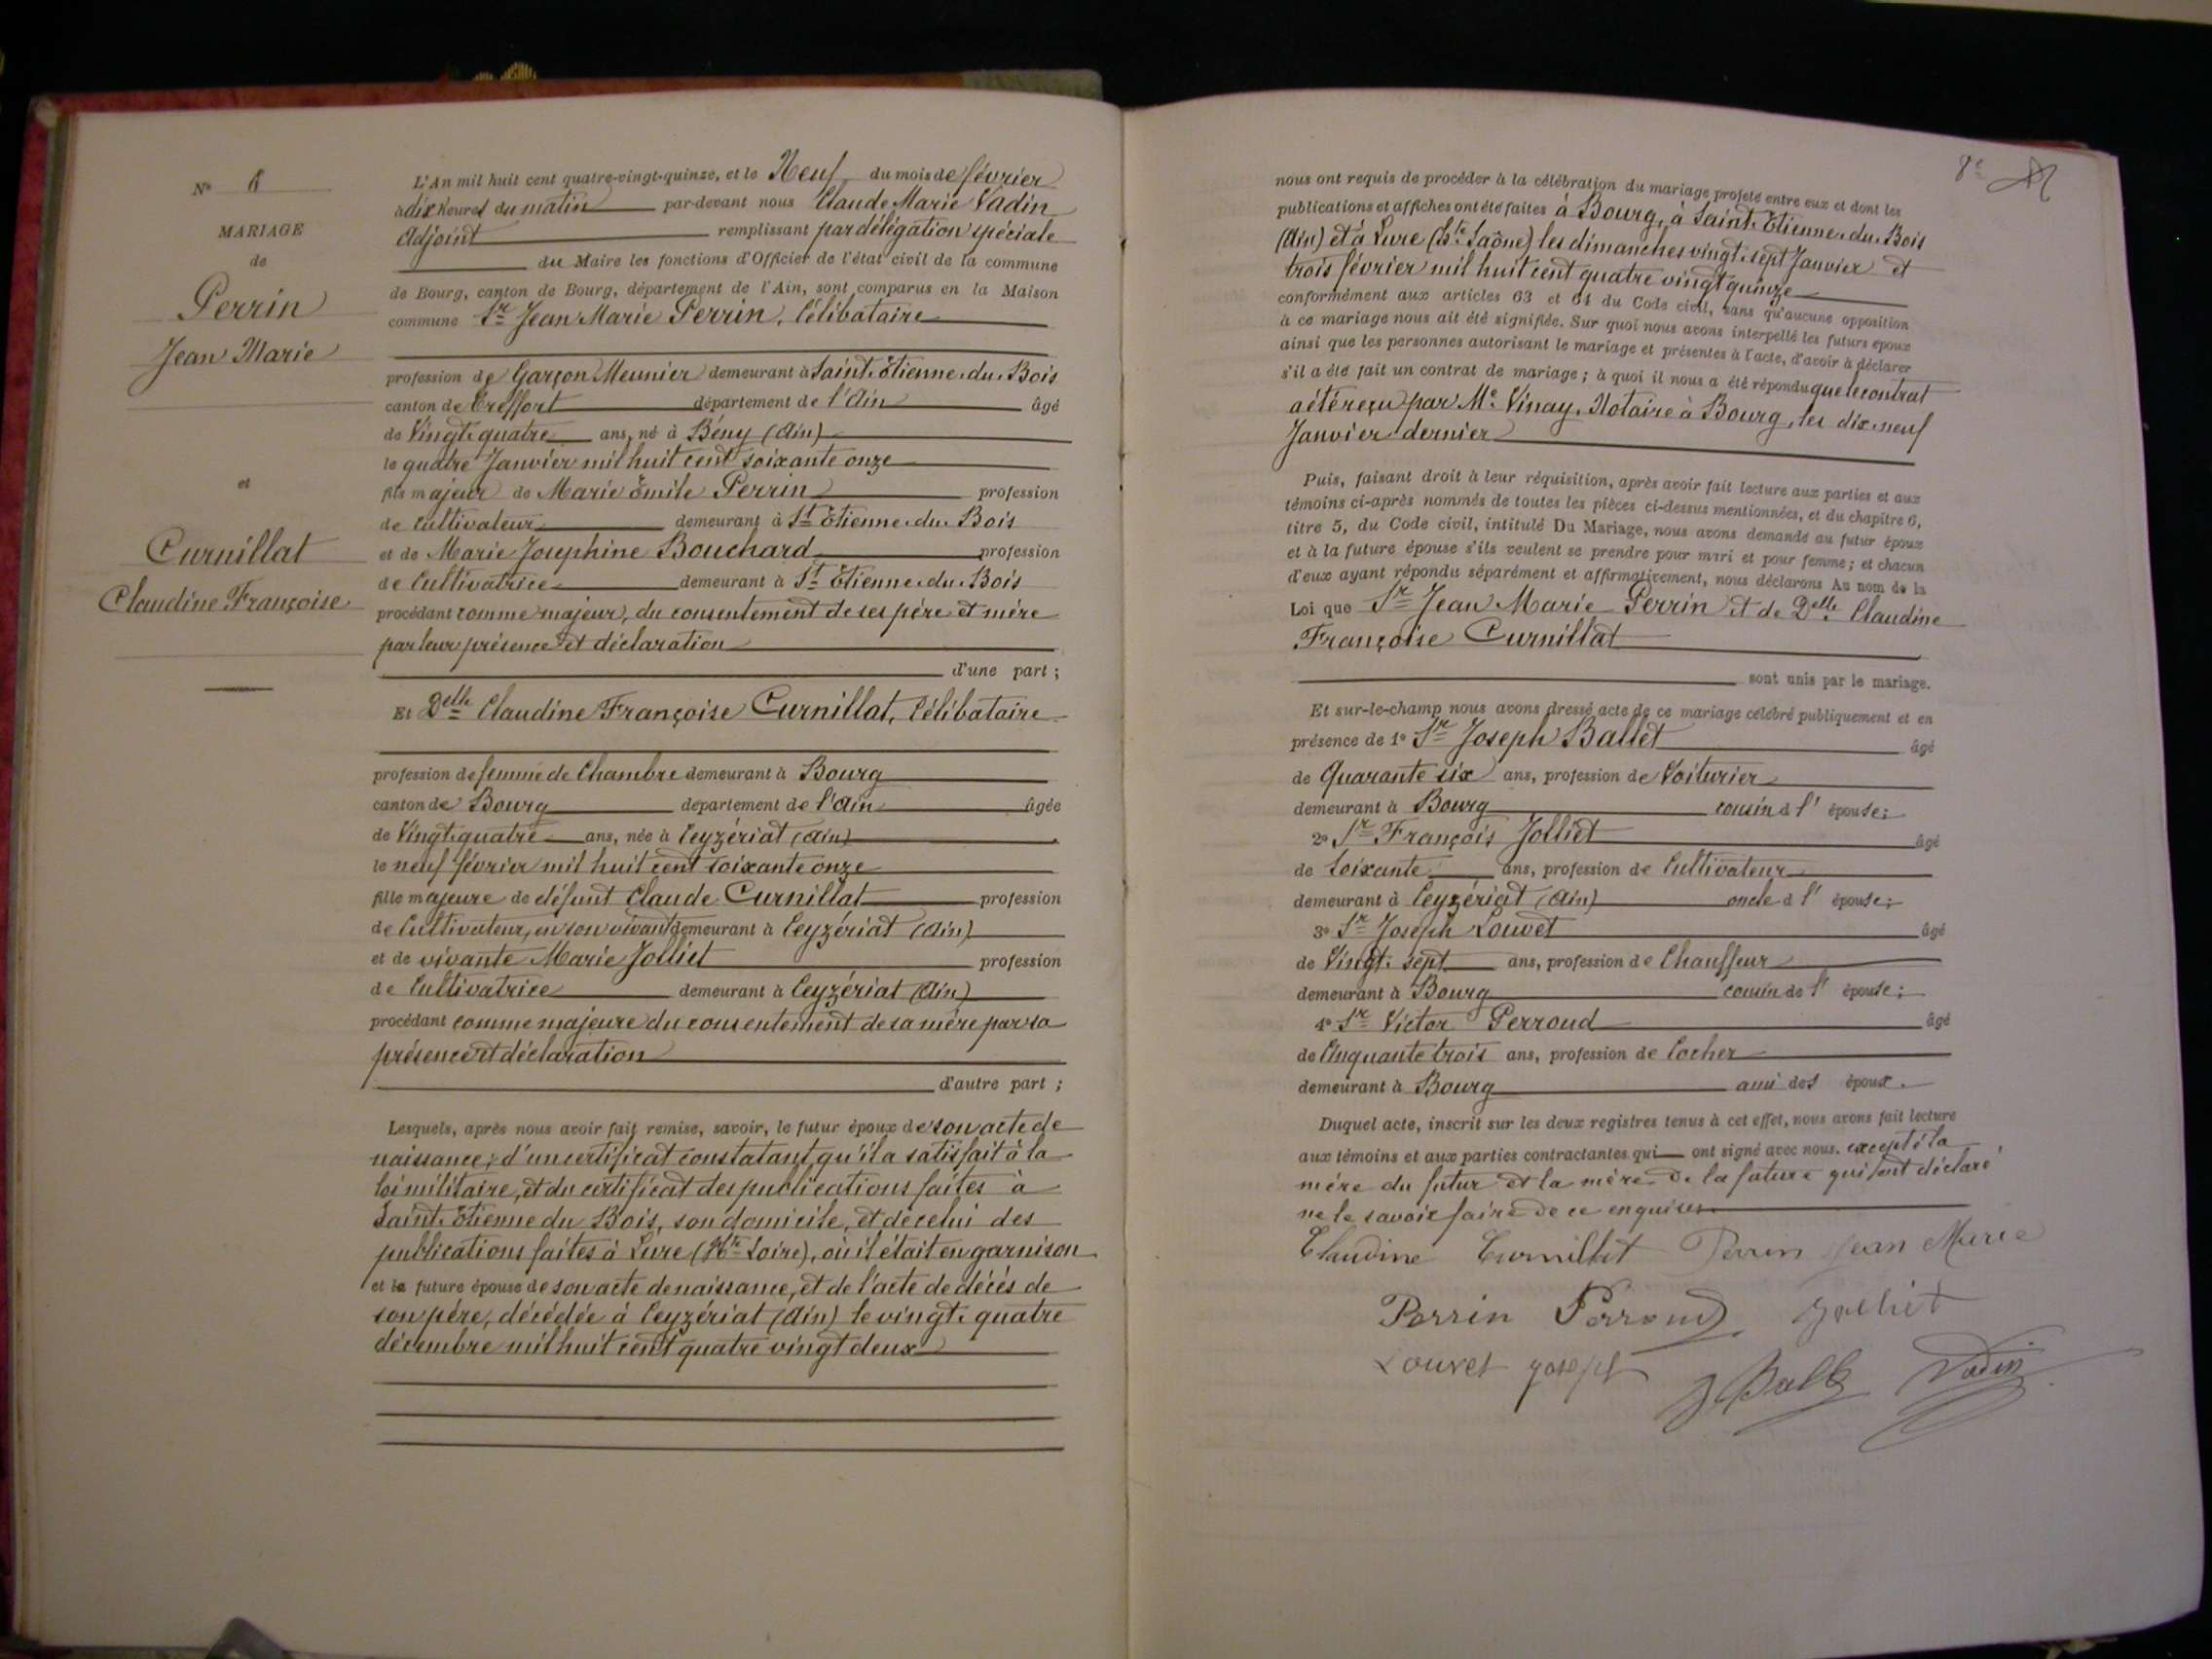 N° 6
MARIAGE
de
Perrin
Jean Marie
et
Curnillat
Claudine Françoise
L'An mil huit cent quatre-vingt-quinze, et le Neuf du mois de février
à dix heures du matin par-devant nous Claude Marie Vadin
Adjoint remplissant par délégation spéciale
du Maire les fonctions d'Officier de l'état civil de la commune
de Bourg, canton de Bourg, département de l'Ain, sont comparus en la Maison
commune Sr Jean Marie Perrin, Célibataire
profession de Garçon Meunier demeurant à Saint-Etienne-du-Bois
canton de Treffort département de l'Ain âgé
de Vingt-quatre ans, né à Bény (Ain)
le quatre Janvier mil huit cent soixante onze
fils majeur de Marie Emile Perrin profession
de Cultivateur demeurant à St Etienne-du-Bois
et de Marie Josephine Bouchard profession
de Cultivatrice demeurant à St Etienne-du-Bois
procédant comme majeur, du consentement de ses père et mère
par leur présence et déclaration
d'une part ;
Et Delle Claudine Françoise Curnillat, Célibataire
profession de femme de Chambre demeurant à Bourg
canton de Bourg département de l'Ain âgée
de Vingt-quatre ans, née à Ceyzériat (Ain)
le neuf février mil huit cent soixante onze
fille majeure de défunt Claude Curnillat profession
de Cultivateur, en son vivant demeurant à Ceyzériat (Ain)
et de vivante Marie Jolliet profession
de Cultivatrice demeurant à Ceyzériat (Ain)
procédant comme majeure du consentement de sa mère par sa
présence et déclaration
d'autre part ;
Lesquels, après nous avoir fait remise, savoir, le futur époux de son acte de
naissance, d'un certificat constatant qu'il a satisfait à la
loi militaire, et du certificat des publications faites à
Saint-Etienne du Bois, son domicile, et de celui des
publications faites à Lure (Hte Loire), où il était en garnison
et la future épouse de son acte de naissance, et de l'acte de décès de
son père, décédée à Ceyzériat (Ain) le vingt-quatre
décembre mil huit cent quatre vingt deux
8e
nous ont requis de procéder à la célébration du mariage projeté entre eux et dont les
publications et affiches ont été faites à Bourg, à Saint-Etienne-du-Bois
(Ain) et à Lure (Hte Saône) les dimanches vingt-sept Janvier et
trois février mil huit cent quatre vingt quinze
conformément aux articles 63 et 64 du Code civil, sans qu'aucune opposition
à ce mariage nous ait été signifiée. Sur quoi nous avons interpellé les futurs époux
ainsi que les personnes autorisant le mariage et présentes à l'acte, d'avoir à déclarer
s'il a été fait un contrat de mariage ; à quoi il nous a été répondu que le contrat
a été reçu par Me Vinay, Notaire à Bourg, les dix-neuf
Janvier dernier
Puis, faisant droit à leur réquisition, après avoir fait lecture aux parties et aux
témoins ci-après nommés de toutes les pièces ci-dessus mentionnées, et du chapitre 6,
titre 5, du Code civil, intitulé Du Mariage, nous avons demandé au futur époux
et à la future épouse s'ils veulent se prendre pour mari et pour femme ; et chacun
d'eux ayant répondu séparément et affirmativement, nous déclarons Au nom de la
Loi que Sr Jean Marie Perrin et de Delle Claudine
Françoise Curnillat
sont unis par le mariage.
Et sur-le-champ nous avons dressé acte de ce mariage célébré publiquement et en
présence de 1° Sr Joseph Ballet âgé
de Quarante six ans, profession de Voiturier
demeurant à Bourg cousin d l' épouse ;
2° Sr François Jolliet âgé
de Soixante ans, profession de Cultivateur
demeurant à Ceyzériat (Ain) oncle d l' épouse ;
3° Sr Joseph Louvet âgé
de Vingt-sept ans, profession de Chauffeur
demeurant à Bourg cousin de l' épouse ;
4° Sr Victor Perroud âgé
de Cinquante trois ans, profession de Cocher
demeurant à Bourg ami des époux.
Duquel acte, inscrit sur les deux registres tenus à cet effet, nous avons fait lecture
aux témoins et aux parties contractantes qui ont signé avec nous. excepté la
mère du futur et la mère de la future qui ont déclaré
ne le savoir faire de ce enquises
Claudine Curnillat Perrin Jean Marie
Perrin Perroud Jolliet
Louvet Joseph J Ballet Vadin